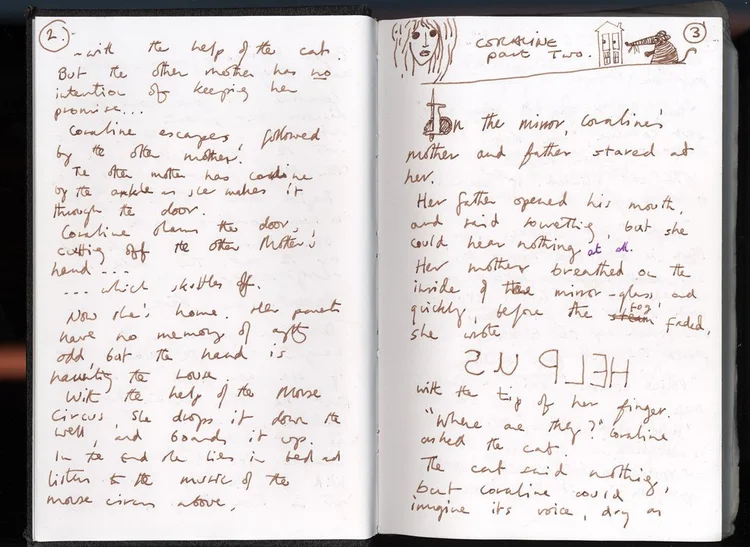 2.
- with the help of the cat.
But the other mother has no
intention of keeping her
promise...
Coraline escapes, followed
by the other mother.
The other mother has Coraline
by the ankle as she makes it
through the door.
Coraline slams the door,
cutting off the other Mother's
hand ---
... which skuttles off.
Now she's home. Her parents
have no memory of
odd, but the hand is
haunting the house.
With the help of the Mouse
Circus, she drops it down the
well, and boards it up.
In the end she lies in bed and
listens to the music of the
mouse circus above.
3
CORALINE
part Two.
In the mirror, Coraline's
mother and father stared at
her.
Her father opened his mouth,
and said something, but she
could hear nothing at all.
Her mother breathed on the
inside of the mirror-glass, and
quickly, before the steam fog faded,
she wrote
HELP US
with the tip of her finger.
"Where are they?" Coraline
asked the cat.
The cat said nothing,
but Coraline could
imagine its voice, dry as